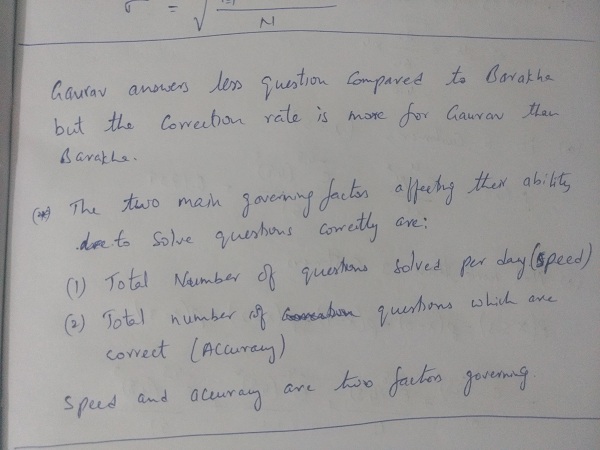 σ = √
N
Gaurav answers less question Compared to Barakha
but the Correction rate is more for Gaurav than
Barakha.
(*) The two main governing factors affecting their ability
to Solve questions correctly are:
(1) Total Number of questions solved per day (speed)
(2) Total number of questions which are
correct (Accuracy)
Speed and accuracy are two factors governing